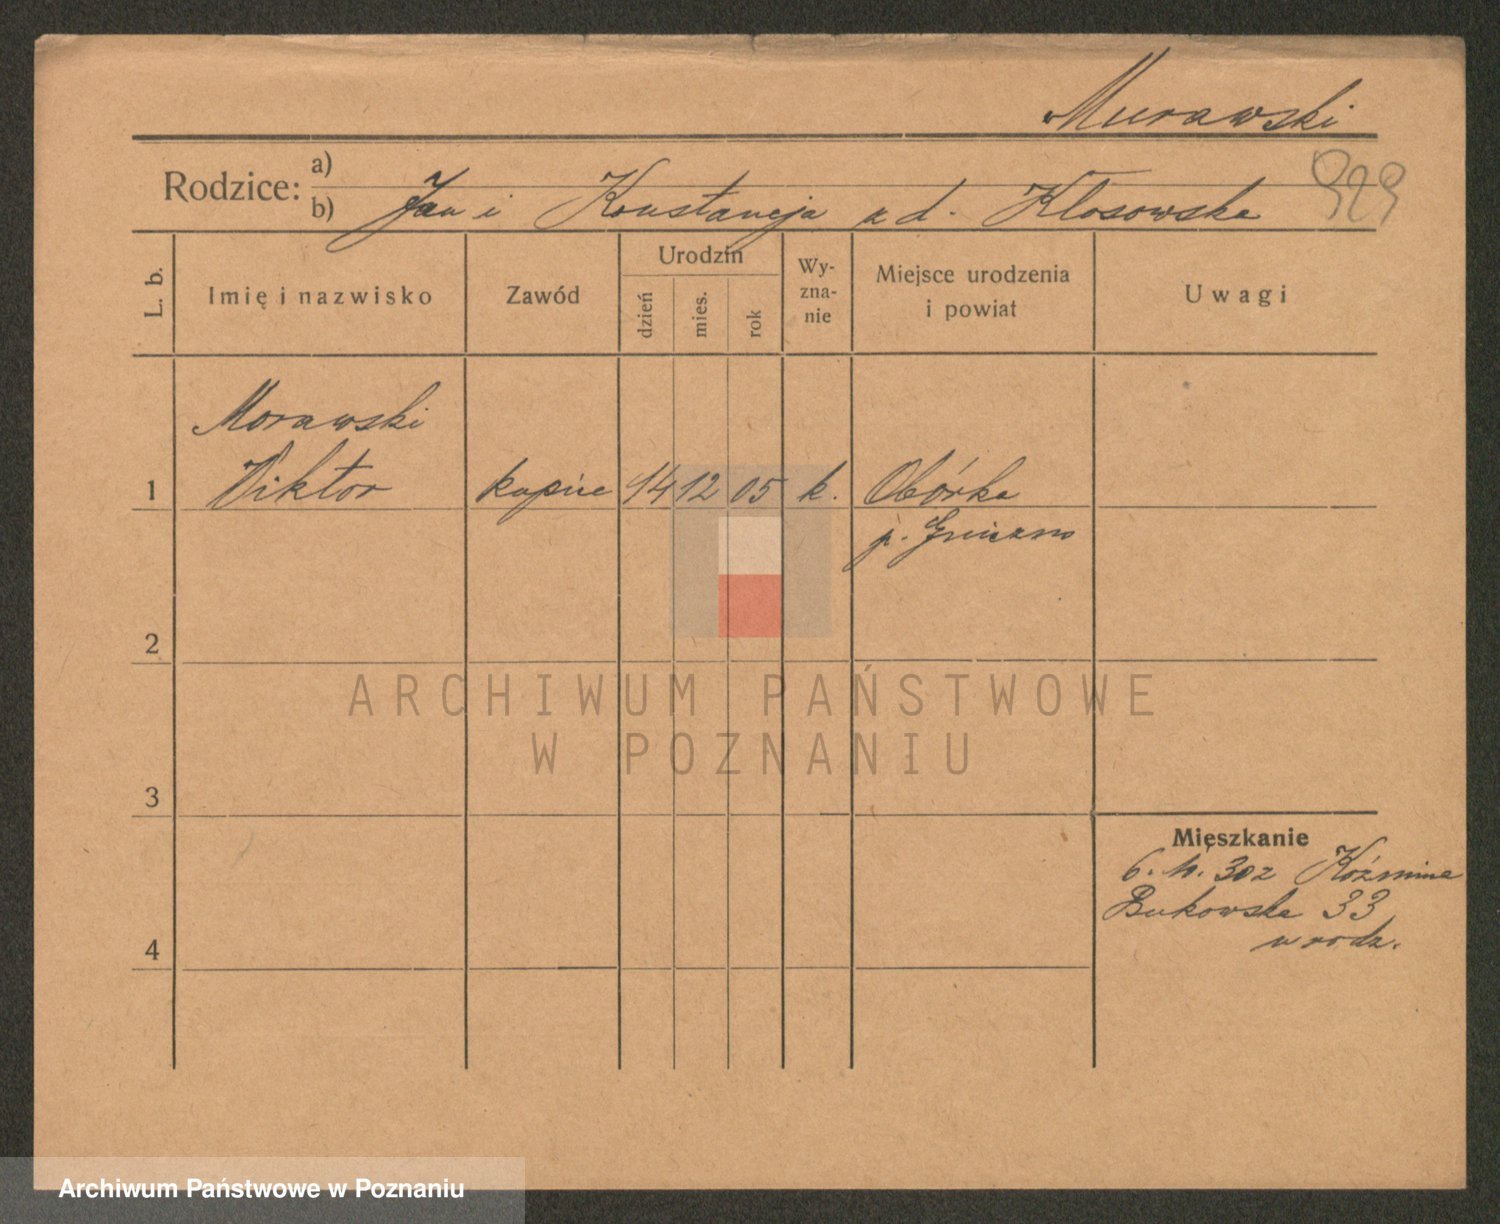 Murawski
Rodzice: a)
b) Jan i Konstancja z d. Kłosowska
929
L. b.
Imię i nazwisko
Zawód
Urodzin
dzień
mies.
rok
Wy-
zna-
nie
Miejsce urodzenia
i powiat
Uwagi
Morawski
1 Wiktor kupiec 14 12 05 k. Obórka
p. Gniezno
2
ARCHIWUM PAŃSTWOWE
W POZNANIU
3
Mieszkanie
6. 11. 30z Koźmina
Bukowska 33
u rodz.
4
Archiwum Państwowe w Poznaniu